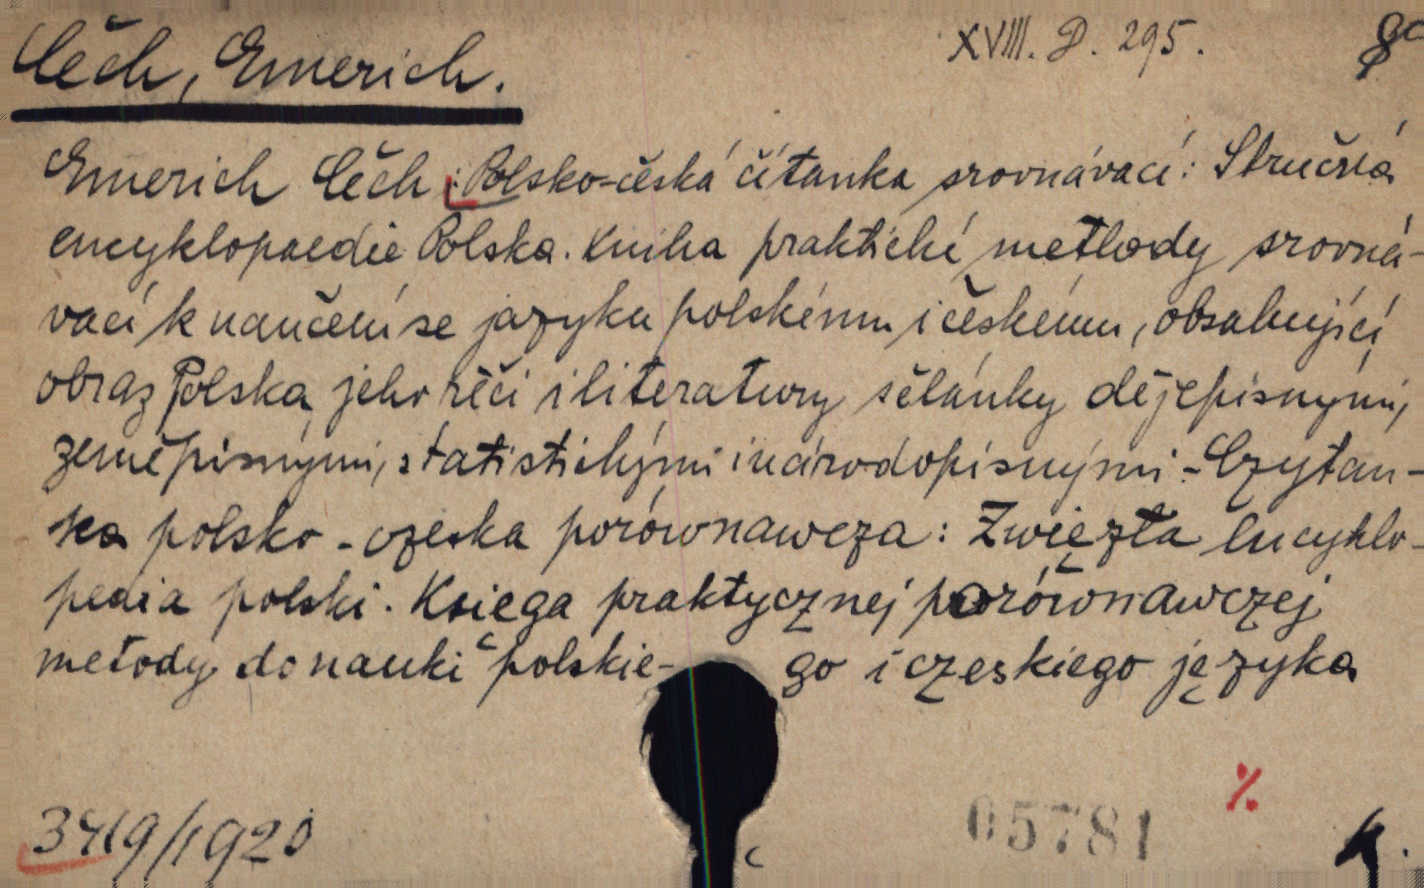 Čěch, Emerich. XVIII. D. 295.
Emerich Čěch: Polsko-česká čítanka srovnávací: Stručná
encyklopaedie Polska. Kniha praktické methody srovná-
vací k naučení se jazyku polskému i českému, obsahující
obraz Polska, jeho řěči i literatury sělánky dějepisnými,
zeměpisnými, statistickými i národopisnými. - Czytan-
ka polsko-czeska porównawcza: Zwięzła Encyklo-
pedia polski. Księga praktycznej porównawczej
metody do nauki polskie- go i czeskiego języka
05781
K.